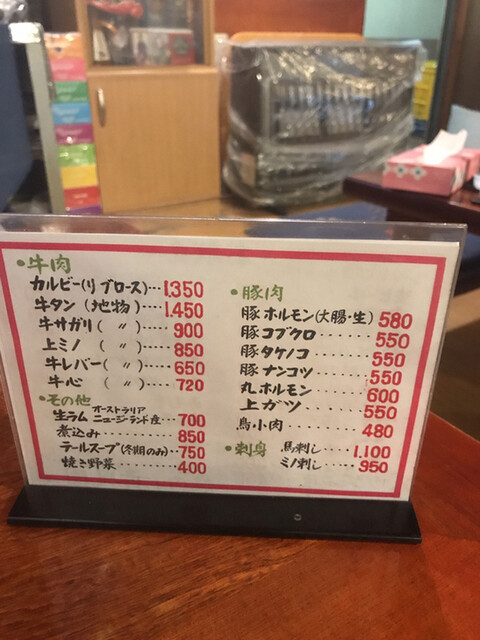 ・牛肉
カルビー(リブロース)…1,350
牛タン(地物)….1,450
牛サガリ(〃)… 900
上ミノ(〃)… 850
牛レバー(〃)…・650
牛心(〃)… 720
・その他
生ラム オーストラリア ニュージーランド産…700
煮込み…… 850
テールスープ(冬期のみ)…750
焼き野菜…… 400
・豚肉
豚ホルモン(大腸・生) 580
豚コブクロ…… 550
豚タケノコ…… 550
豚ナンコツ…… 550
丸ホルモン…… 600
上ガツ…… 550
鳥小肉…… 480
・刺身 馬刺し…1,100
ミノ刺し… 950